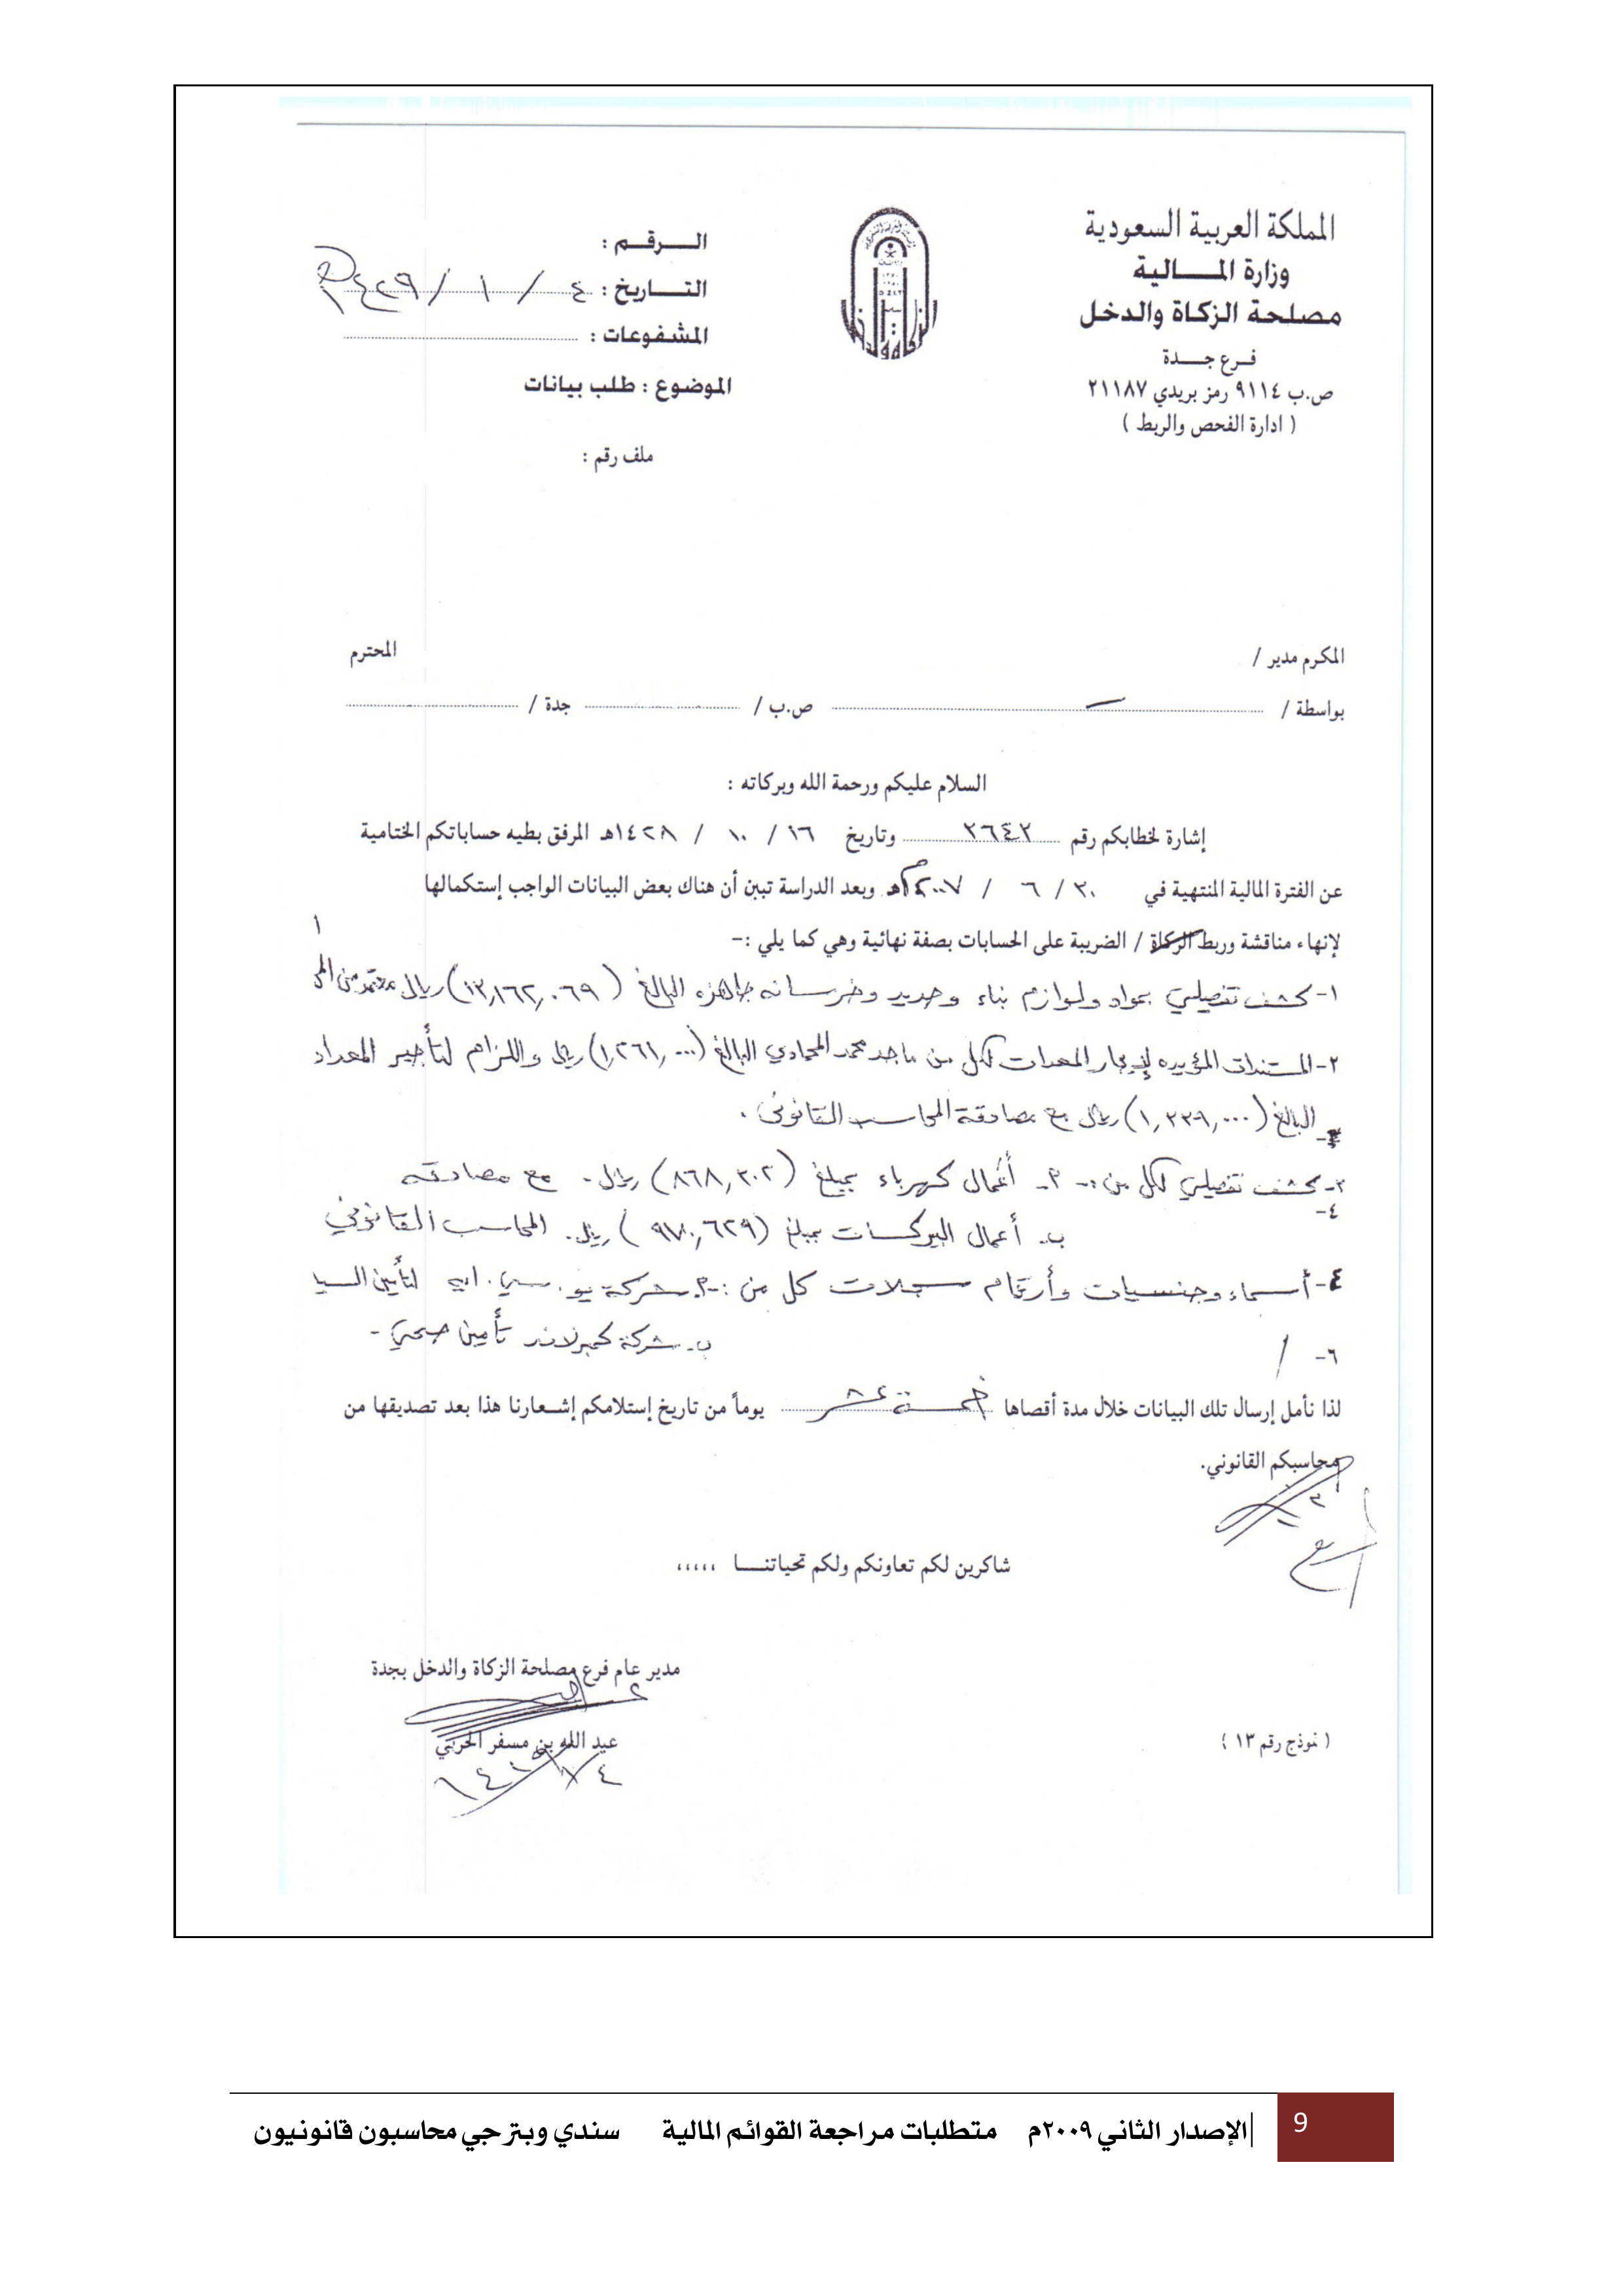 المملكة العربية السعودية
وزارة المـــالية
مصلحة الزكاة والدخل
فـرع جـــدة
ص.ب ٩١١٤ رمز بريدي ٢١١٨٧
( ادارة الفحص والربط )
الـــرقــم :
التـــاريخ : ٤ / ١ / ١٤٢٩
المشفوعات :
الموضوع : طلب بيانات
ملف رقم :
المكرم مدير / المحترم
بواسطة / ص.ب / جدة /
السلام عليكم ورحمة الله وبركاته :
إشارة لخطابكم رقم ٢٦٤٢ وتاريخ ١٦ / ١٠ / ١٤٢٨هـ المرفق بطيه حساباتكم الختامية
عن الفترة المالية المنتهية في ٣٠ / ٦ / ٢٠٠٧ وبعد الدراسة تبين أن هناك بعض البيانات الواجب إستكمالها
لإنهاء مناقشة وربط الزكاة / الضريبة على الحسابات بصفة نهائية وهي كما يلي :-
١- كشف تفصيلي بمواد ولوازم بناء وحديد وخرسانه جاهزه البالغ (١٣,١٦٢,٠٦٩) ريال معتمد من
٢- المستندات المؤيده لإيجار المعدات لكل من ماجد محمد المحمادي البالغ (١,٢٦١,٠٠٠) ريال و لتأجير المعدات
البالغ (١,٢٣٩,٠٠٠) ريال مع مصادقة المحاسب القانوني .
٣- كشف تفصيلي لكل من :- أ- أعمال كهرباء بمبلغ (٨٦٨,٣٠٢) ريال . مع مصادقة
٤-
ب- أعمال البركسات بمبلغ (٩٧٠,٦٢٩) ريال . المحاسب القانوني
٤- أسماء وجنسيات وأرقام سجلات كل من :- أ- شركة يو . سي . ايه لتأمين السيا
ب- شركة تأمين صحي -
٦- /
لذا نأمل إرسال تلك البيانات خلال مدة أقصاها خمسة عشر يوماً من تاريخ إستلامكم إشـعارنا هذا بعد تصديقها من
محاسبكم القانوني.
شاكرين لكم تعاونكم ولكم تحياتنـــا ،،،،،
مدير عام فرع مصلحة الزكاة والدخل بجدة
عبد الله بن مسفر الحربي
( نموذج رقم ١٣ )
9 |الإصدار الثاني ٢٠٠٩م متطلبات مراجعة القوائم المالية سندي وبترجي محاسبون قانونيون